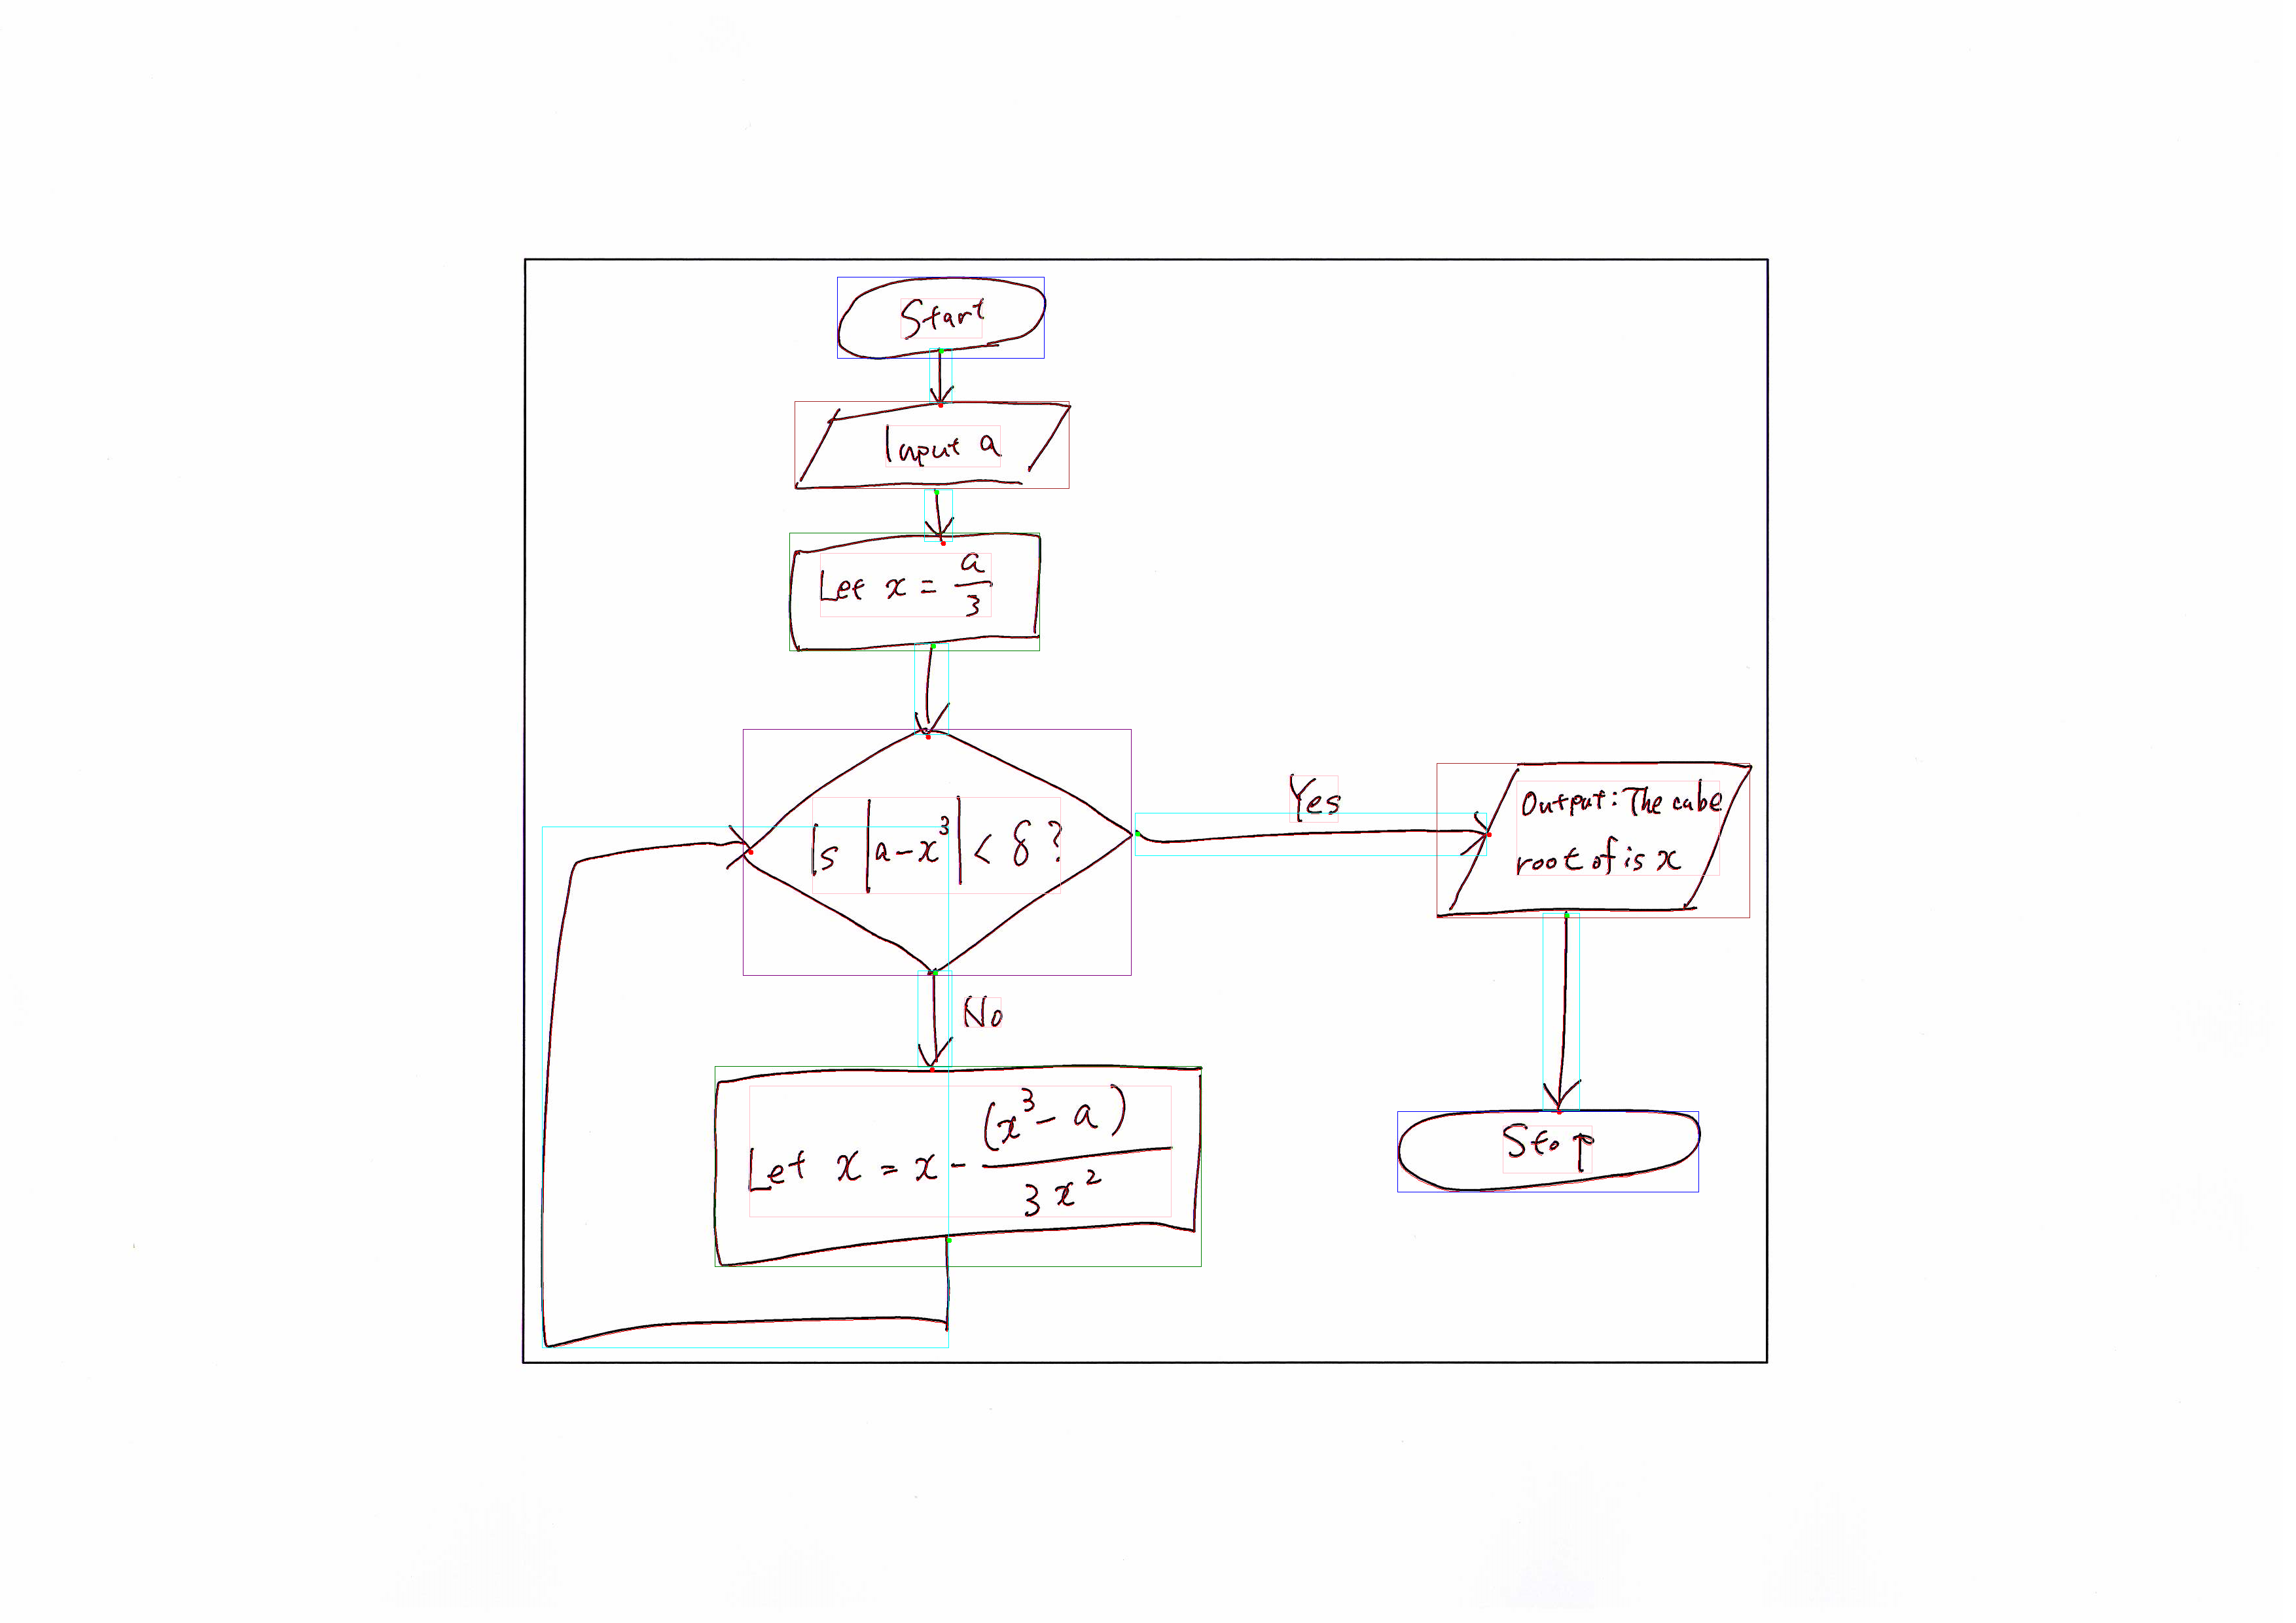 Start
Input a
Let x = a/3
Is |a-x³| < δ ?
Yes
Output: The cube
root of is x
No
Let x = x - (x³ - a)/3x²
Stop